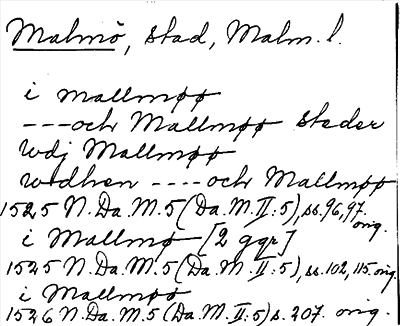 Malmö, stad, Malm. l.
i Mallmøø
---och Mallmøø steder
Wdj Mallmøø
widhen ----och Mallmøø
1525 N.Da.M.5 (Da.M.II:5), ss.96,97. orig.
i Mallmø [2 ggr]
1525 N.Da.M.5 (Da.M.II:5), ss.102, 115. orig.
i Mallmøø
1526 N.Da.M.5 (Da.M.II:5) s. 207. orig.